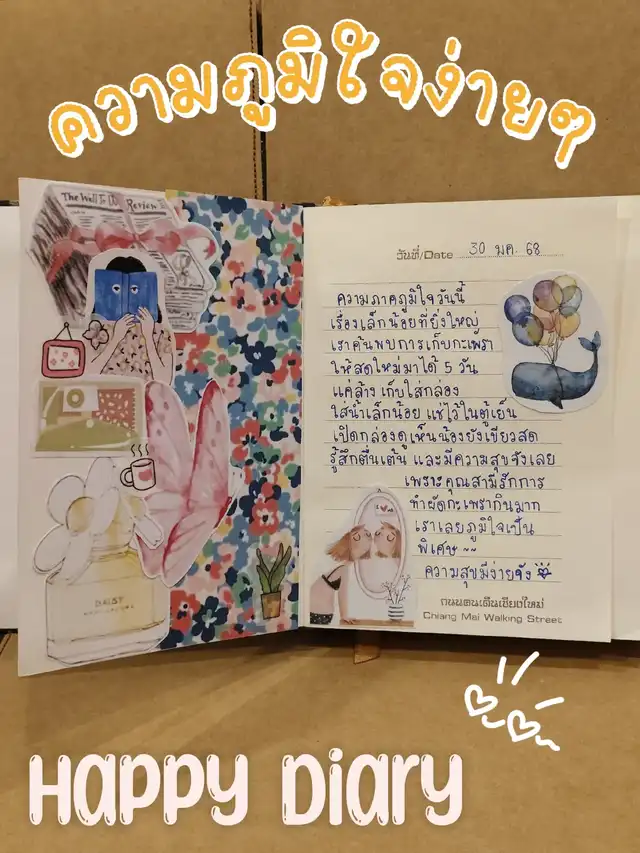 ความภูมิใจง่ายๆ
The Wall
Review
DAISY
วันที่/Date 30 มค. 68
ความภาคภูมิใจวันนี้
เรื่องเล็กน้อยที่ยิ่งใหญ่
เราค้นพบการเก็บกะเพรา
ให้สดใหม่มาได้ 5 วัน
แค่ล้าง เก็บใส่กล่อง
ใส่น้ำเล็กน้อย แช่ไว้ในตู้เย็น
เปิดกล่องดูเห็นน้องยังเขียวสด
รู้สึกตื่นเต้น และมีความสุขจังเลย
เพราะคุณสามีรักการ
ทำผัดกะเพรากินมาก
เราเลยภูมิใจเป็น
พิเศษ ~~
ความสุขมีง่ายจัง
ถนนคนเดินเชียงใหม่
Chiang Mai Walking Street
Happy Diary